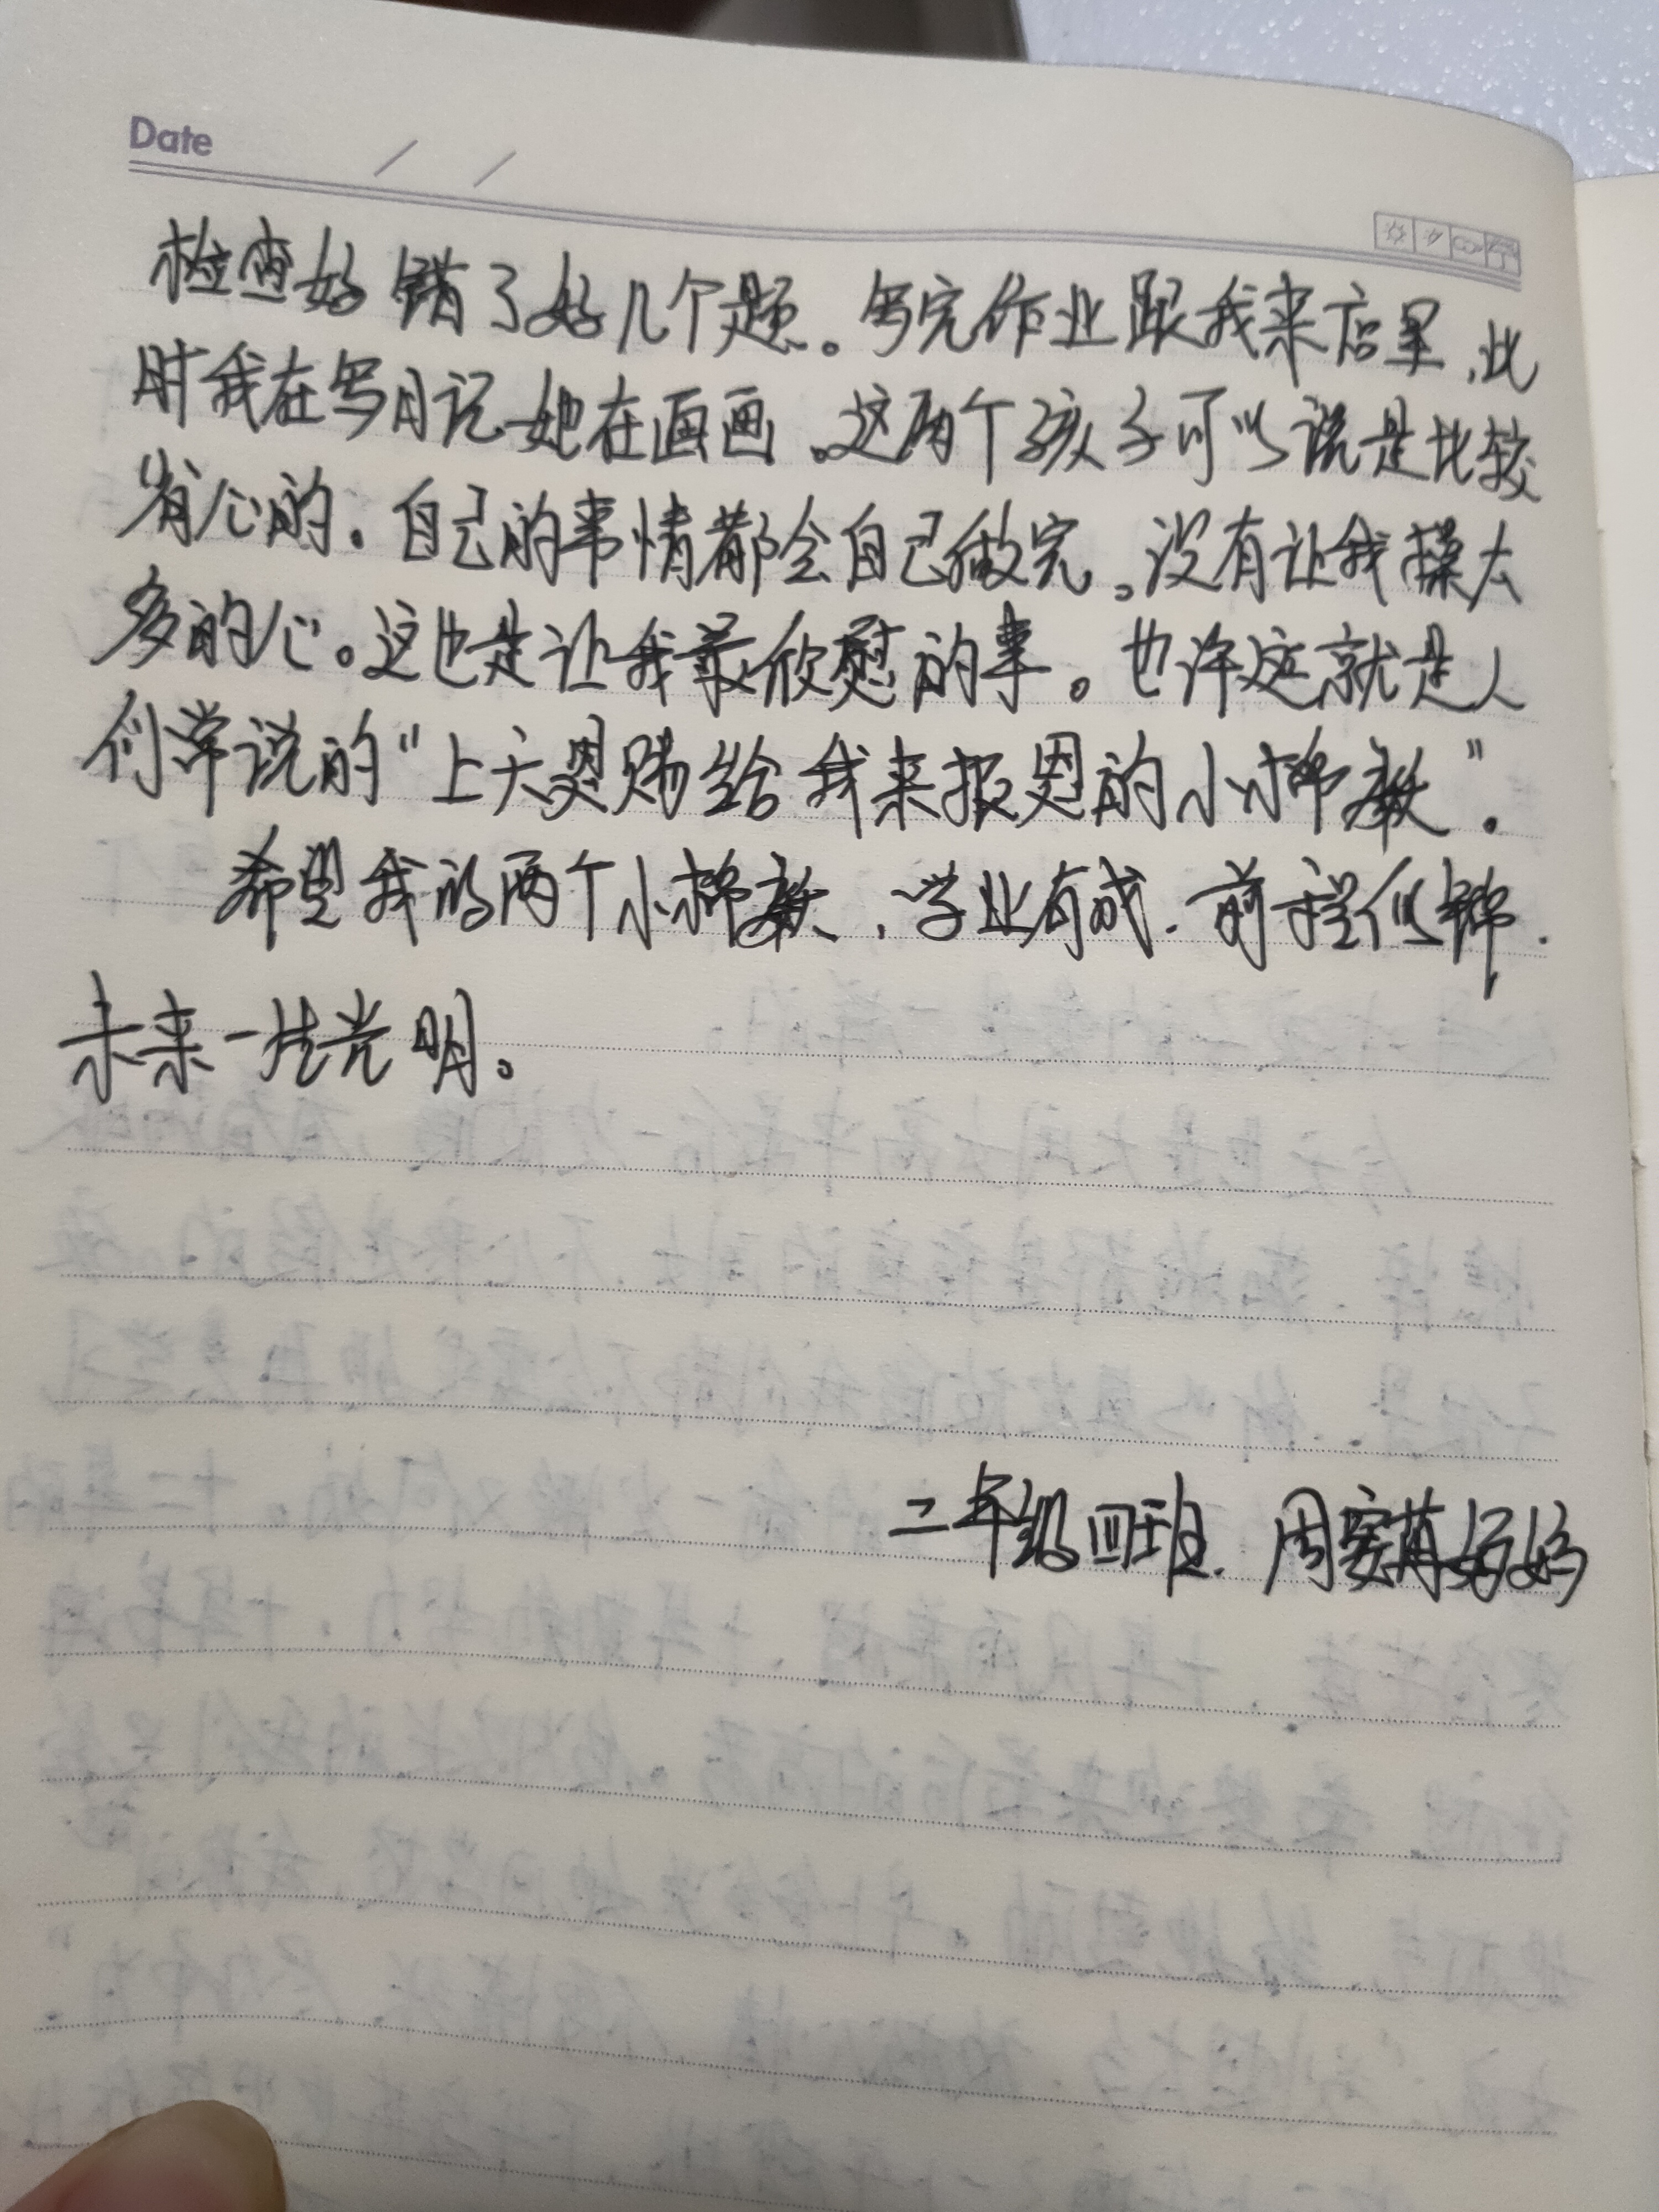 Date / /
检查好错了好几个题。写完作业跟我来店里,此
时我在写日记她在画画。这两个孩子可以说是比较
省心的.自己的事情都会自己做完。没有让我操太
多的心。这也是让我最欣慰的事。也许这就是人
们常说的"上天恩赐给我来报恩的小棉袄".
希望我的两个小棉袄、学业有成.前程似锦.
未来一片光明。
二年级四班.周萌妈妈